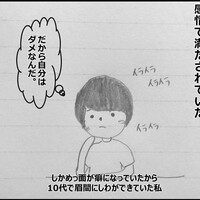 感情で満たされていた
イライラ
イライラ
イライラ
だから自分は
ダメなんだ。
しかめっ面が癖になっていたから
10代で眉間にしわができていた私